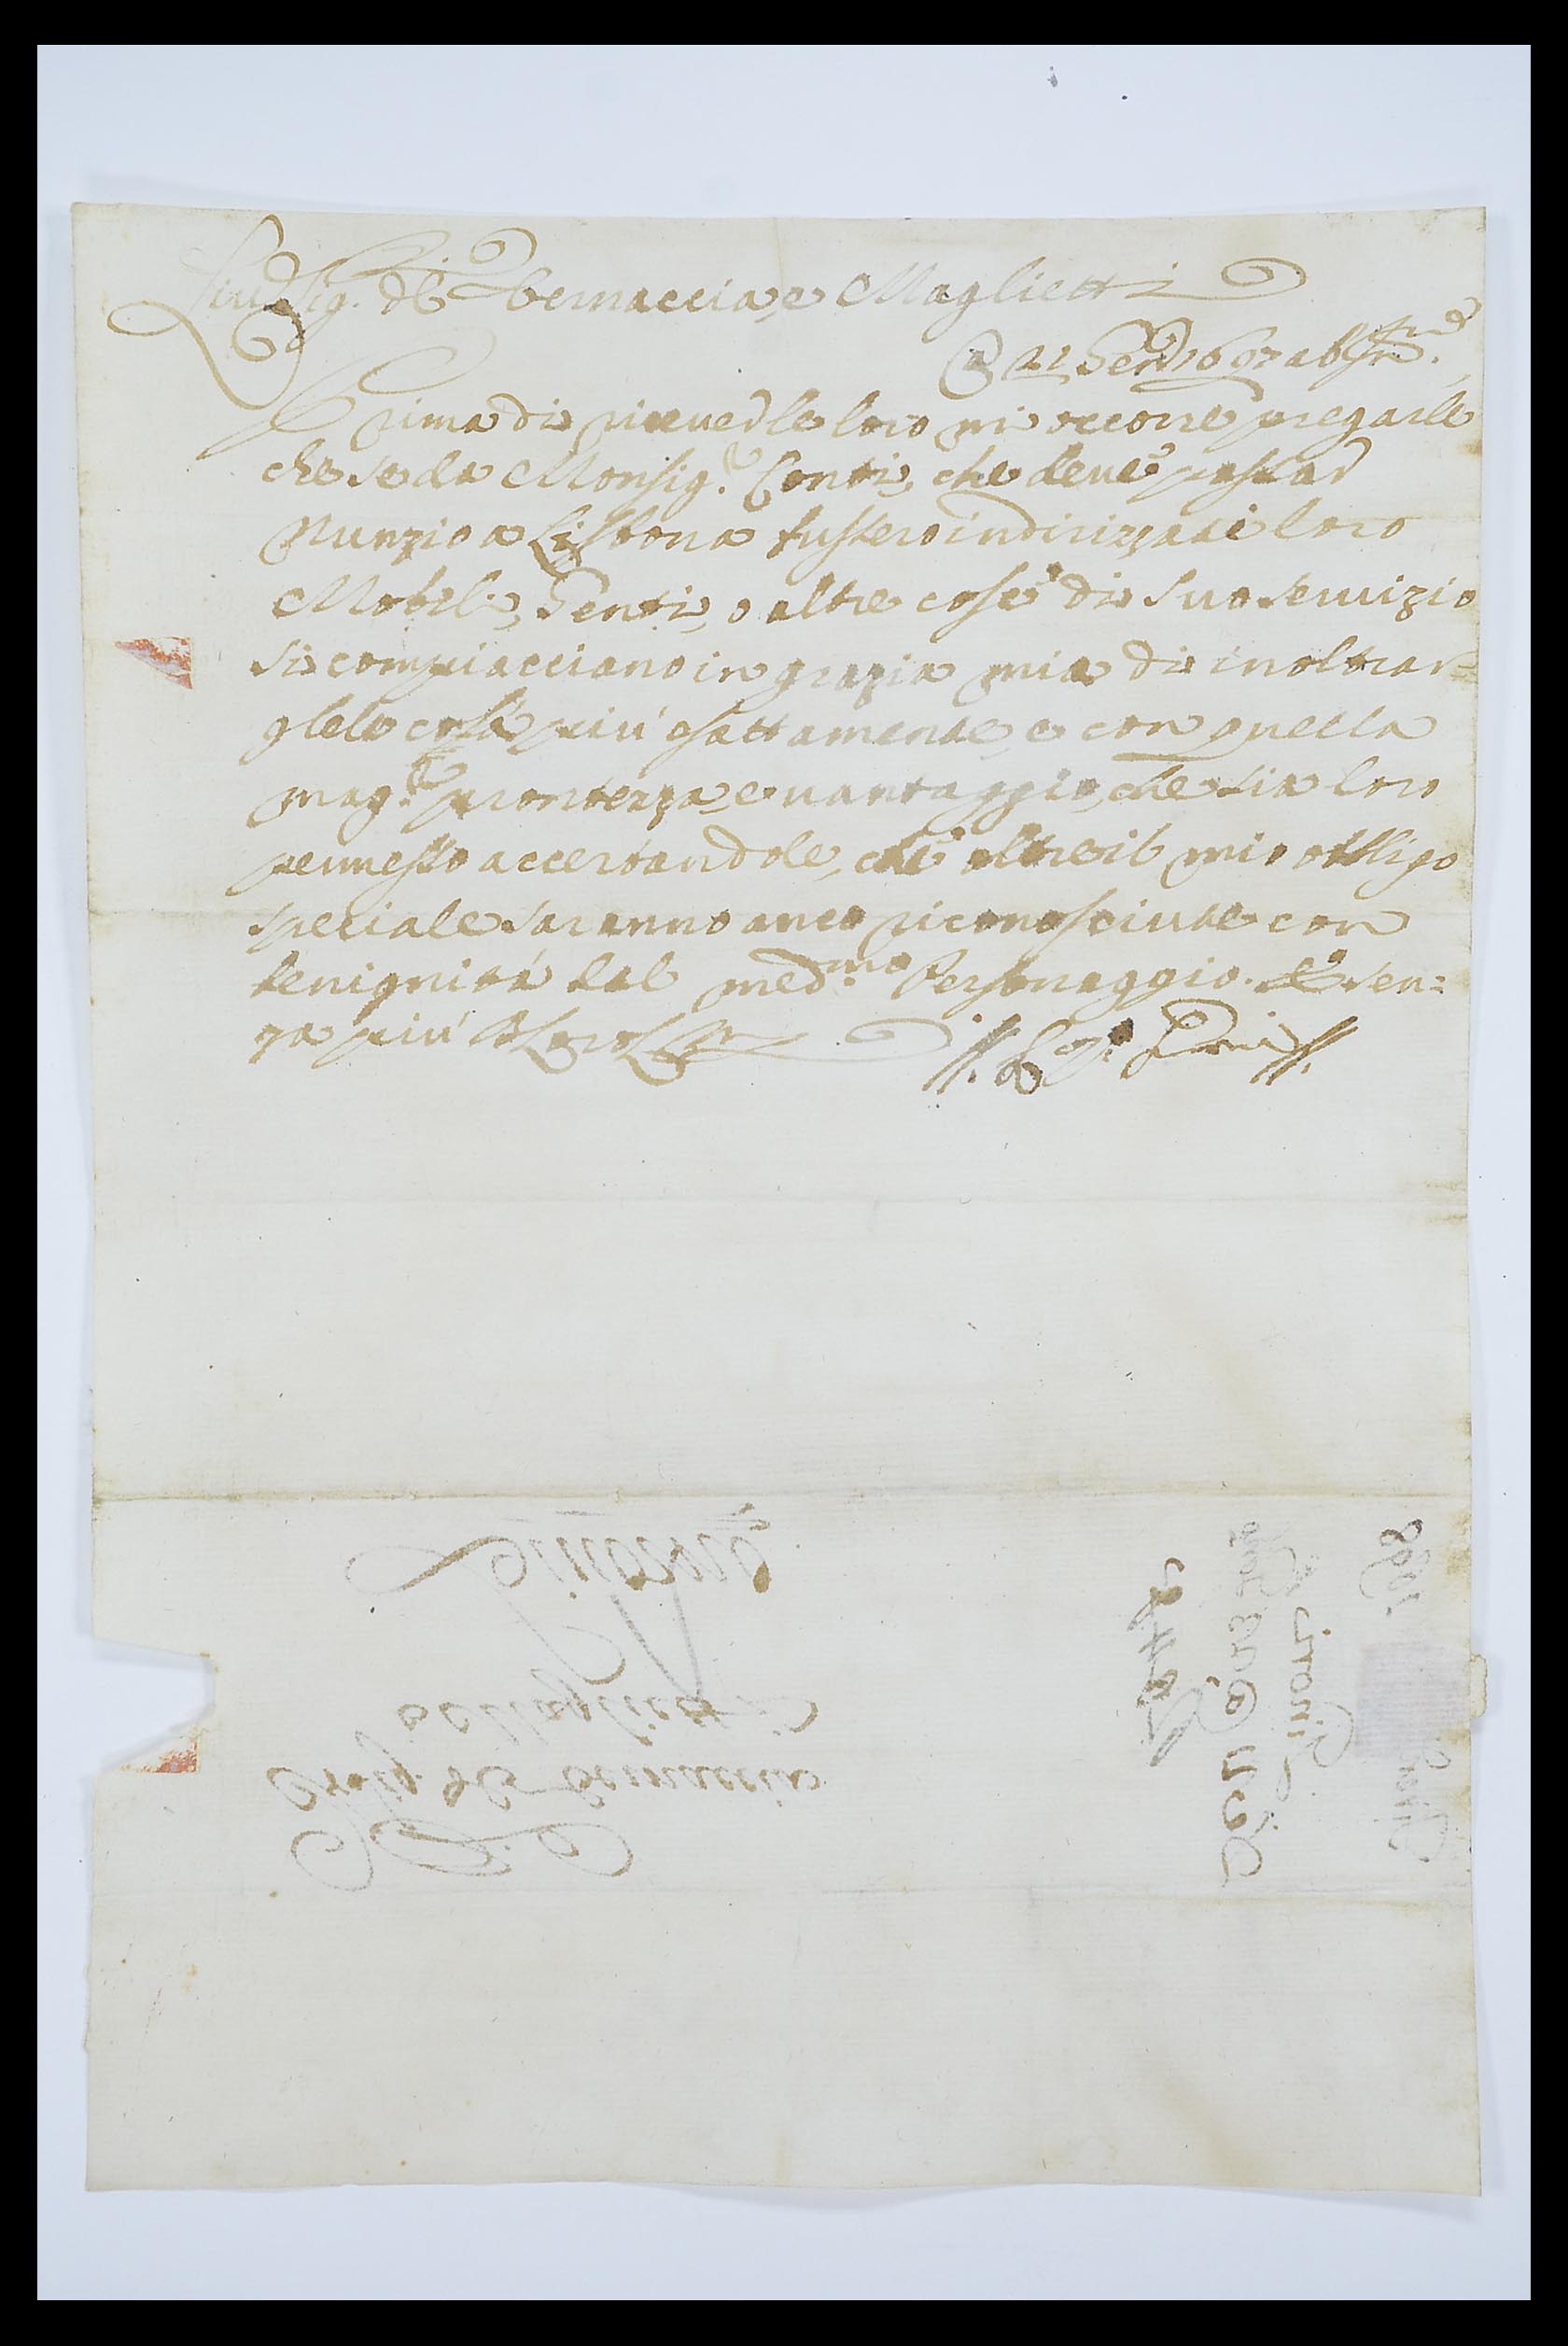 Sig. de Bernaccia, e Maglietti
21 Gen. 1697 ab Inc.
Prima di riceuer le loro mi occorre pregarle
che se da Monsig.r Conti, che deue passar
Nunzio a Lisbona fussero indirizzati loro
Mobili, Genti, o altre cose di suo seruizio
si compiacciano in grazia mia di inoltrar=
glele costà più esattamente, e con quella
mag.re prontezza, e uantaggio, che sia loro
permesso accertandole, che oltre il mio obbligo
speciale saranno anco riconosciute con
benignità dal med.mo Personaggio. E sen=
za più
Liuorno
e Maglietti
Sig. de Bernaccia
1698